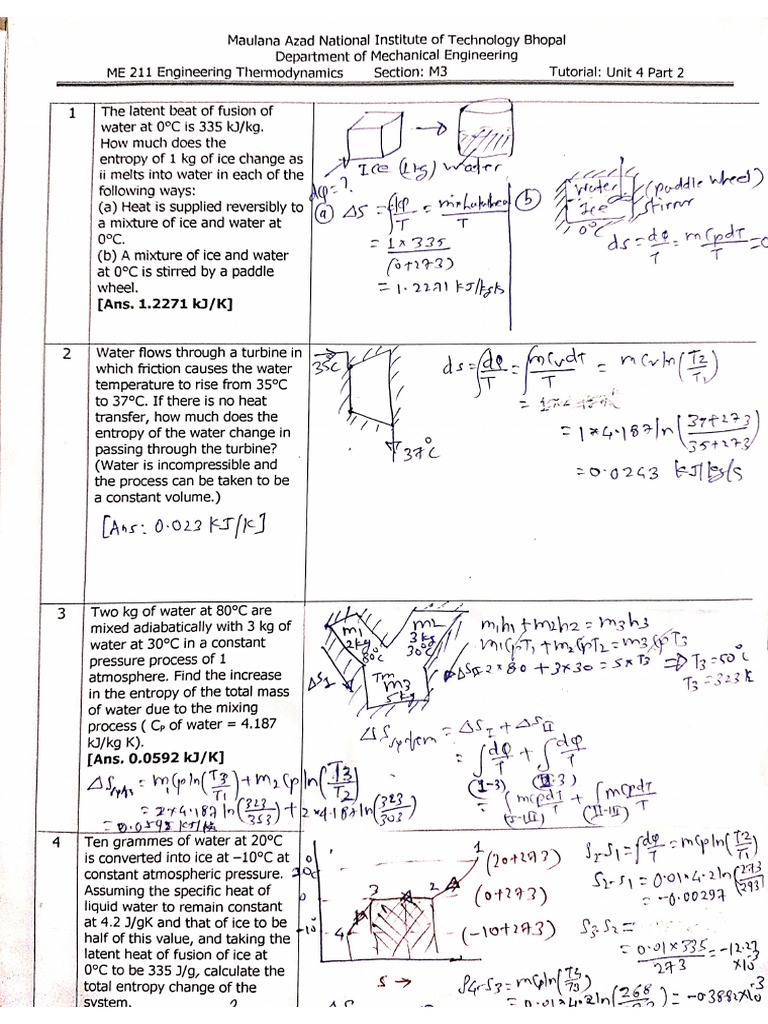 Maulana Azad National Institute of Technology Bhopal
Department of Mechanical Engineering
ME 211 Engineering Thermodynamics Section: M3 Tutorial: Unit 4 Part 2
1
The latent beat of fusion of
water at 0°C is 335 kJ/kg.
How much does the
entropy of 1 kg of ice change as
ii melts into water in each of the
following ways:
(a) Heat is supplied reversibly to
a mixture of ice and water at
0°C.
(b) A mixture of ice and water
at 0°C is stirred by a paddle
wheel.
[Ans. 1.2271 kJ/K]
Ice (1kg) water
dφ=?
(a) ΔS = ∫dφ/T =
= 1×335/(0+273)
= 1.2271 kJ/kgk
(b)
water
Ice
0°C
(puddle wheel)
stirrer
ds = dφ/T = mCpdT/T = 0
2
Water flows through a turbine in
which friction causes the water
temperature to rise from 35°C
to 37°C. If there is no heat
transfer, how much does the
entropy of the water change in
passing through the turbine?
(Water is incompressible and
the process can be taken to be
a constant volume.)
[Ans: 0.023 KJ/K]
35c
37°C
ds = ∫dφ/T = ∫mCvdT/T = mCvln(T2/T1)
= 1×4.187ln(37+273/35+273)
= 0.0243
3
Two kg of water at 80°C are
mixed adiabatically with 3 kg of
water at 30°C in a constant
pressure process of 1
atmosphere. Find the increase
in the entropy of the total mass
of water due to the mixing
process ( CP of water = 4.187
kJ/kg K).
[Ans. 0.0592 kJ/K]
m1
2kg
80°C
m2
3kg
30°C
ΔSI
Tm
m3
5kg
m1h1+m2h2=m3h3
m1CpT1+m2CpT2=m3CpT3
ΔSII 2×80+3×30=5×T3 ⇒ T3=50°C
T3=323K
ΔSsystem = ΔSI + ΔSII
= ∫dφ/T + ∫dφ/T
(1-3)
= ∫mCpdT/T + ∫mCpdT/T
(I-III) (II-III)
= m1Cpln(T3/T1)+m2Cpln(T3/T2)
= 2×4.187ln(323/353)+2×4.187ln(323/303)
4
Ten grammes of water at 20°C
is converted into ice at –10°C at
constant atmospheric pressure.
Assuming the specific heat of
liquid water to remain constant
at 4.2 J/gK and that of ice to be
half of this value, and taking the
latent heat of fusion of ice at
0°C to be 335 J/g, calculate the
total entropy change of the
system.
0
-10°
1
2
3
4
(20+273)
(0+273)
(-10+273)
S →
S2-S1=∫dφ/T=mCpln(T2/T1)
S2-S1=0.01×4.2ln(273/293)
=-0.00297
S3-S2=
=0.01×335/273=-12.27×10-3
S4-S3=mCpln(T4/T3)
=0.01×4.2ln(268/